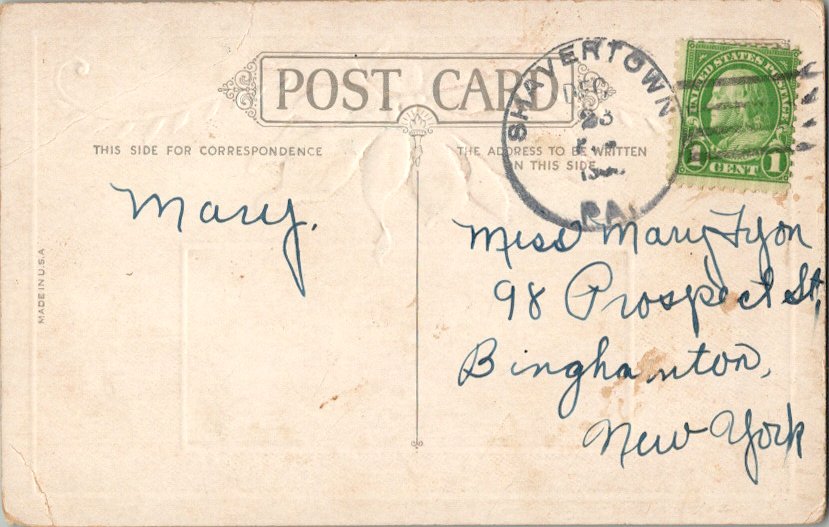 POST CARD
THIS SIDE FOR CORRESPONDENCE
THE ADDRESS TO BE WRITTEN
ON THIS SIDE
SHAVERTOWN
DEC
23
PA.
UNITED STATES POSTAGE
1 CENT 1
Mary.
Miss Mary Lyon
98 Prospect St,
Binghamton,
New York
MADE IN U.S.A